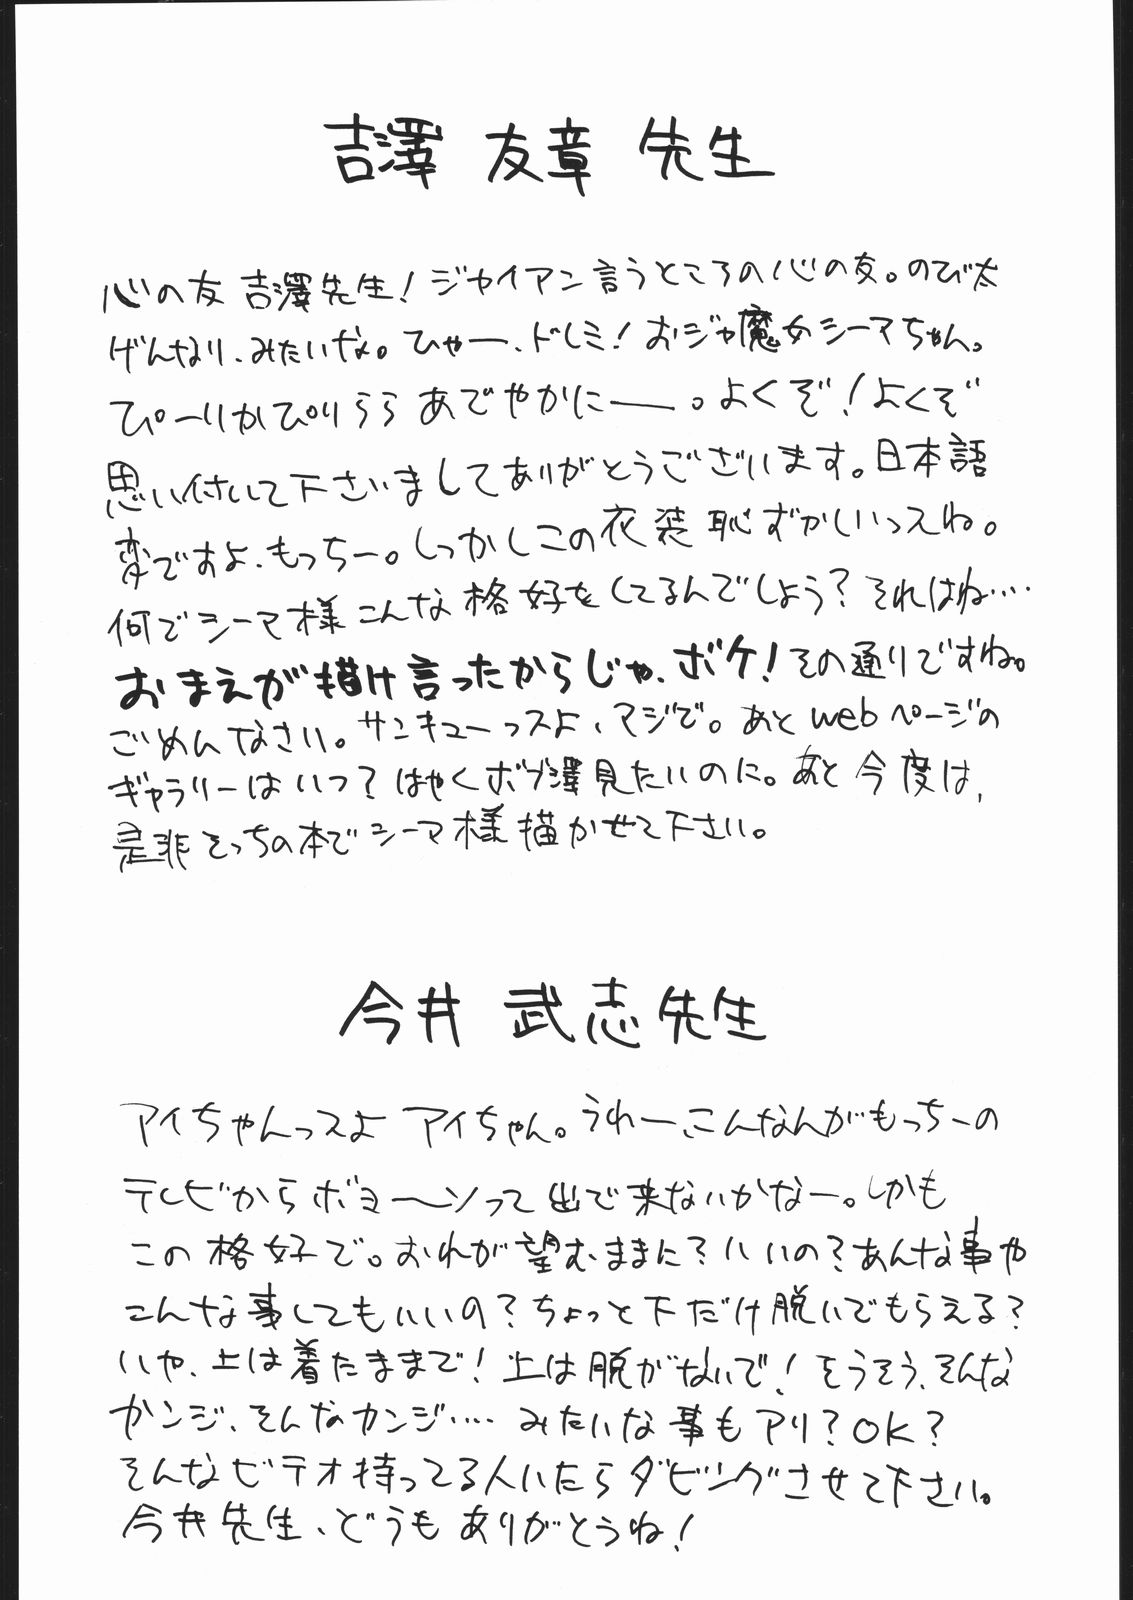 吉澤 友章 先生
心の友 吉澤先生!ジャイアン言うところの心の友。のび太
げんなり、みたいな。ひゃー、ドレミ!おジャ魔女シーマちゃん。
ぴーりかぴりらら あでやかにー。よくぞ!よくぞ
思い付いて下さいましてありがとうございます。日本語
変ですよ、もっちー。しっかしこの衣装恥ずかしいっスね。
何でシーマ様こんな格好をしてるんでしょう?それはね‥‥
おまえが描け言ったからじゃ、ボケ!その通りですね。
ごめんなさい。サンキューっスよ、マジで。あとwebページの
ギャラリーはいつ?はやくボグ澤見たいのに。あと今度は、
是非そっちの本でシーマ様描かせて下さい。
今井 武志先生
アイちゃんっスよ アイちゃん。うれー、こんなんがもっちーの
テレビからボヨ〜ンって出て来ないかなー。しかも
この格好で。おれが望むままに?いいの?あんな事や
こんな事してもいいの?ちょっと下だけ脱いでもらえる?
いや、上は着たままで!上は脱がないで!そうそう、そんな
カンジ、そんなカンジ‥‥みたいな事もアリ?OK?
そんなビデオ持ってる人いたらダビングさせて下さい。
今井先生、どうもありがとうね!